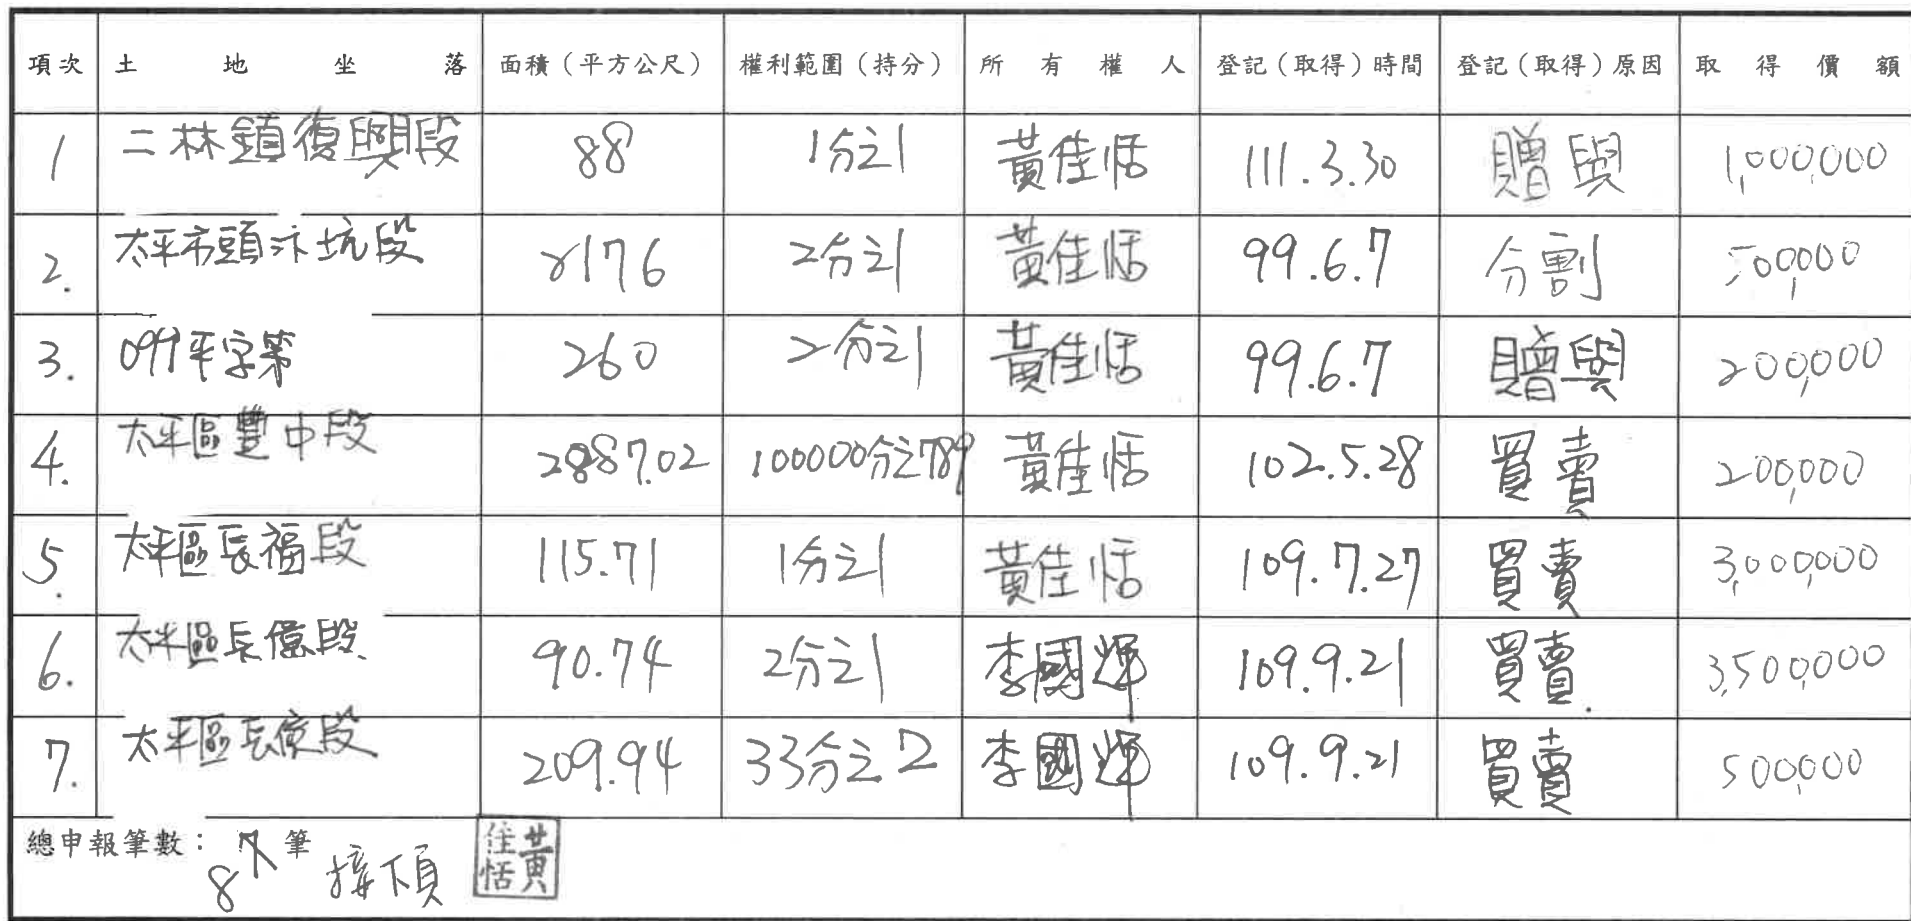 項次 土地坐落 面積（平方公尺） 權利範圍（持分） 所有權人 登記（取得）時間 登記（取得）原因 取得價額
1 二林鎮復興段 88 1分之1 黃佳恬 111.3.30 贈與 1,000,000
2. 太平市頭汴坑段 2176 2分之1 黃佳恬 99.6.7 分割 500,000
3. 平字第 260 2分之1 黃佳恬 99.6.7 贈與 200,000
4. 太平區豐中段 2887.02 100000分之789 黃佳恬 102.5.28 買賣 200,000
5. 太平區長福段 115.71 1分之1 黃佳恬 109.7.27 買賣 3,000,000
6. 太平區長億段 90.74 2分之1 李國輝 109.9.21 買賣 3,500,000
7. 太平區長億段 209.94 33分之2 李國輝 109.9.21 買賣 500,000
總申報筆數：8筆 接下頁 黃佳恬